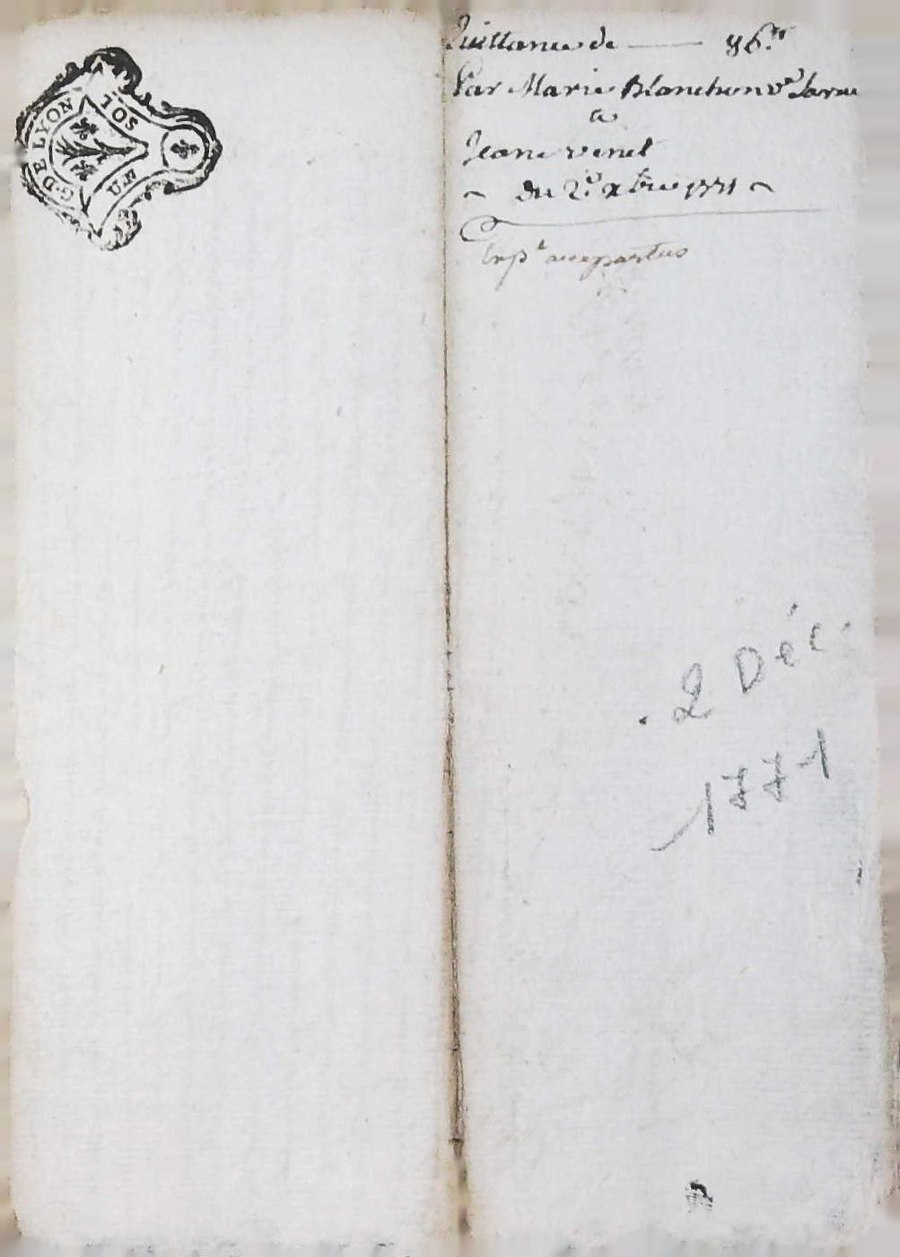 G. DE LYON
SOL
UN
Quittance de — 86.tt
Par Marie Blanchon v.e
a
Jean venet
~ du 2.e xbre 1771 ~
Exp.é
2 Déc.
1771